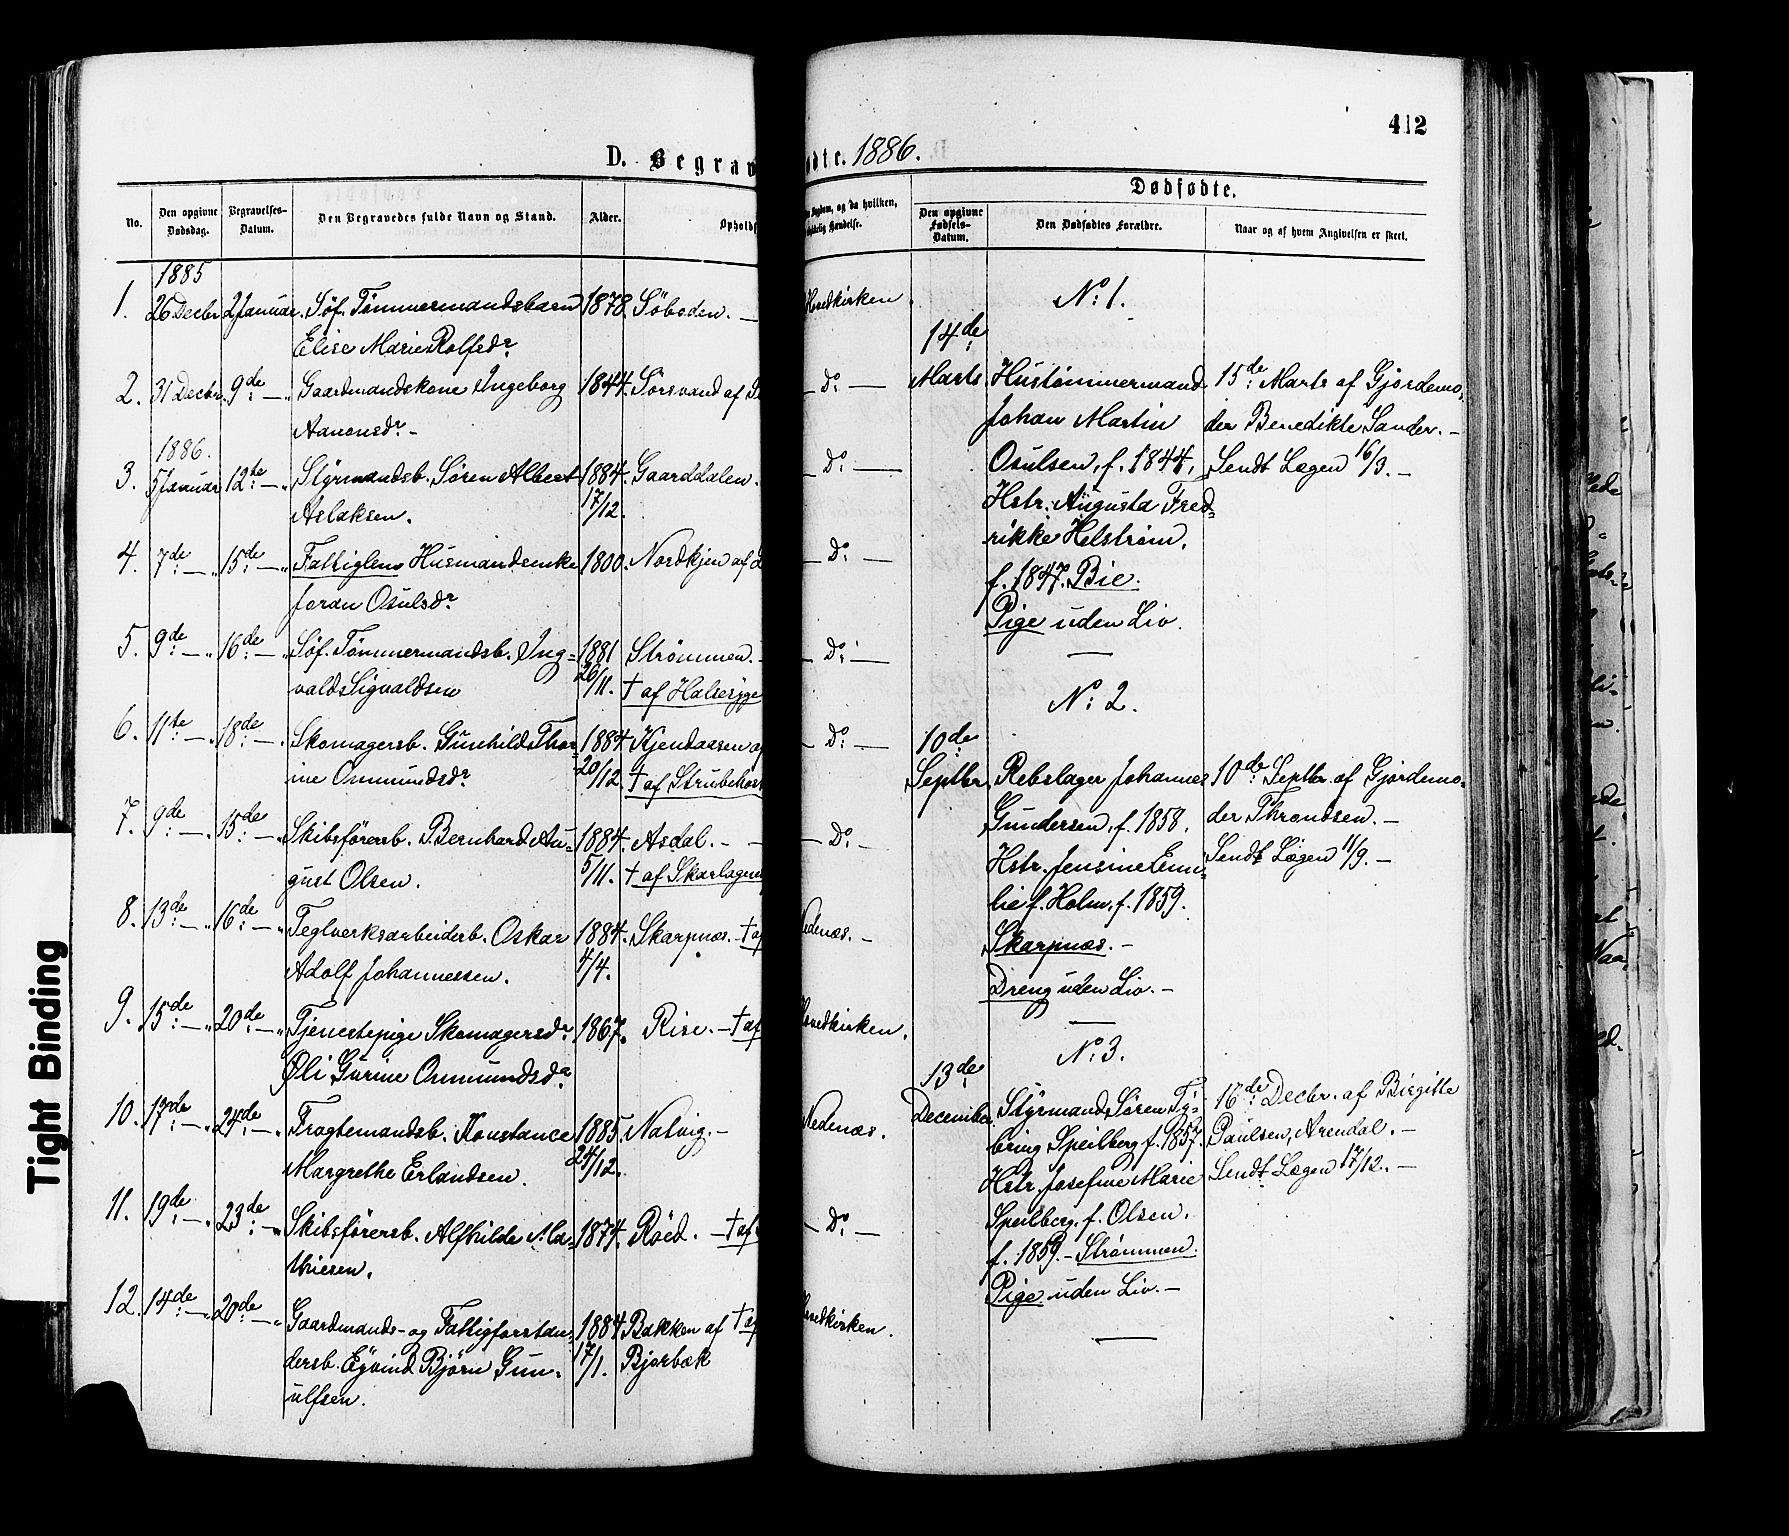 412
D. Begrav
ødte. 1886.
No.
Den opgivne Dødsdag.
Begravelses-Datum.
Den Begravedes fulde Navn og Stand.
Alder.
Opholds
1885
1. 26 Decbr 2 Januar. Søf. Tømmermandsbarn 1878. Söboden. —
Elise Marie Rolfsdr.
2. 31 Decbr. 9de — Gaardmandskone Ingeborg 1844. Sörsvand af
Aanonsdr. -
1886.
3. 5 Januar 12te — Styrmandsb. Sören Albert 1884. Gaarddalen.
Aslaksen. 17/12.
4. 7de — 15de — Fattiglem Husmandsenke 1800. Nordkjen af
Joran Osulsdr.
5. 9de — 16de — Söf. Tømmermandsb. Ing= 1881 Strømmen. -
vald Sigvaldsen 26/11. † af Halssyge
6. 11te — 18de — Skomagersb. Gunhild Thor= 1884. Kjendaasen
ine Ommundsdr. 20/12. † af Strubehost
7. 9de — 15de — Skibsförersb. Bernhard Au= 1884. Asdal. -
gust Olsen. 5/11. † af Skarlagen
8. 13de — 16de — Teglverksarbeiderb. Oskar 1884. Skarpnæs. - † af
Adolf Johannessen. 4/4.
9. 15de — 20de — Tjenestepige Skomagersdr. 1867. Rise. - † af
Øli Gurine Ommundsdr.
10. 17de — 24de — Fragtemandsb. Konstance 1885 Natvig. -
Margrethe Erlandsen. 24/12.
11. 19de — 23de — Skibsförersb. Alfhilde Ma= 1874. Röed. - † af
thiesen.
12. 14de — 20de — Gaardmands- og Fattigforstan= 1884 Bakken af † af
dersb. Eyvind Björn Gun= 17/1. Bjorbæk
ulfsen.
Sygdom, og da hvilken,
Hændelse.
Dødfødte.
Den opgivne Fødsels-Datum.
Den Dødfødtes Forældre.
Naar og af hvem Angivelsen er skeet.
Hovedkirken.
— Do. —
— Do. —
— Do. —
— Do. —
— Do. —
— Do. —
Nedenæs. -
Hovedkirken.
Nedenæs.
— Do. —
Hovedkirken.
No. 1.
14de
Marts Hustømmermand 15de Marts af Gjordemo=
Johan Martin der Benedikte Sander. -
Osulsen, f. 1844, Sendt Lægen 16/3. -
Hstr. Augusta Fred=
rikke Helstrøm.
f. 1847. Bie.
Pige uden Liv.
No. 2.
10de
Septbr. Rebslager Johannes 10de Septbr. af Gjordemo=
Gundersen, f. 1858. der Throndsen. -
Hstr. Jensine Emi= Sendt Lægen 11/9. -
lie f. Holm, f. 1859.
Skarpnæs. -
Dreng uden Liv. -
No. 3.
13de
December. Styrmand Sören Ty= 16de Decbr. af Birgitte
bring Speilberg f. 1857. Paulsen, Arendal. -
Hstr. Josefine Marie Sendt Lægen 17/12. -
Speilberg, f. Olsen.
f. 1859. - Strømmen.
Pige uden Liv. -
Tight Binding